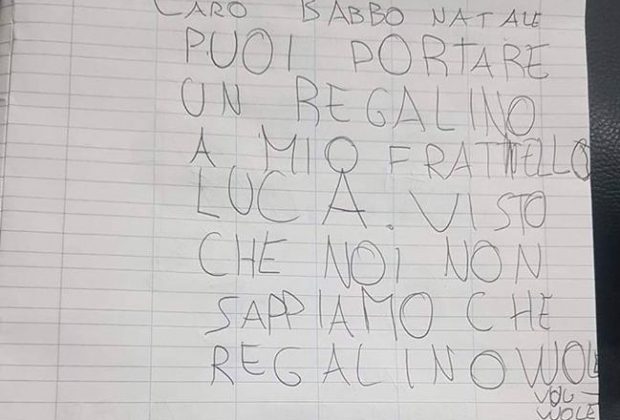 CARO BABBO NATALE
PUOI PORTARE
UN REGALINO
A MIO FRATNELLO
LUCA. VISTO
CHE NOI NON
SAPPIAMO CHE
REGALINO WOLE
WOLE